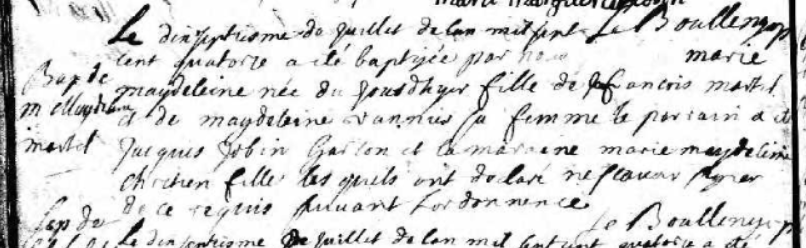 Le dixseptiesme de Juillet de lan mil sept Le Boullenger
cent quatorze a été baptisée par nous marie
Bap de
magdeleine née du jourdhyer fille de francois martel
m magdelaine
et de magdeleine vannier sa femme le parrain a été
martel
Jacques Jobin Garson et la maraine marie magdeleine
chretien fille lesquels ont declaré ne scavoir signer
de ce requis suivant lordonnence
Le Boullenger
Bap de
Le dixseptiesme de Juillet de lan mil sept cent quatorze a